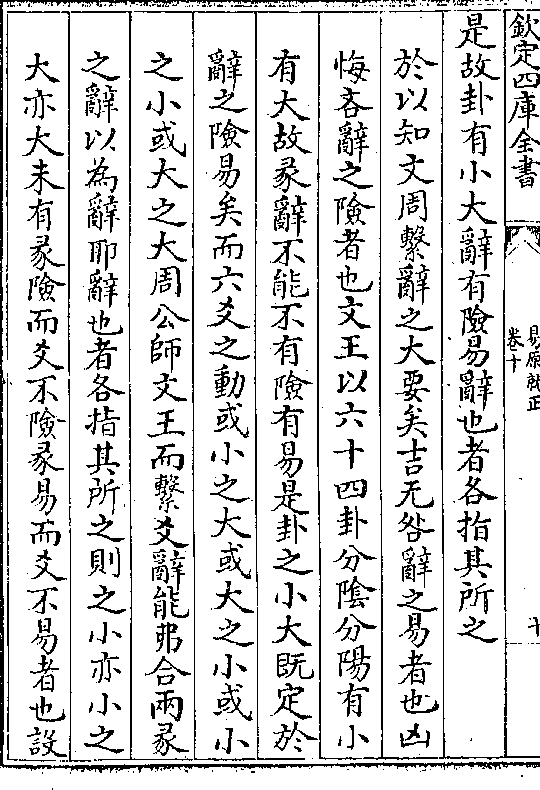 欽定四庫全書
易原就正
卷十
十
是故卦有小大辭有險易辭也者各指其所之
於以知文周繫辭之大要矣吉无咎辭之易者也凶
悔吝辭之險者也文王以六十四卦分陰分陽有小
有大故彖辭不能不有險有易是卦之小大既定於
辭之險易矣而六爻之動或小之大或大之小或小
之小或大之大周公師文王而繫爻辭能弗合兩彖
之辭以為辭耶辭也者各指其所之則之小亦小之
大亦大未有彖險而爻不險彖易而爻不易者也設